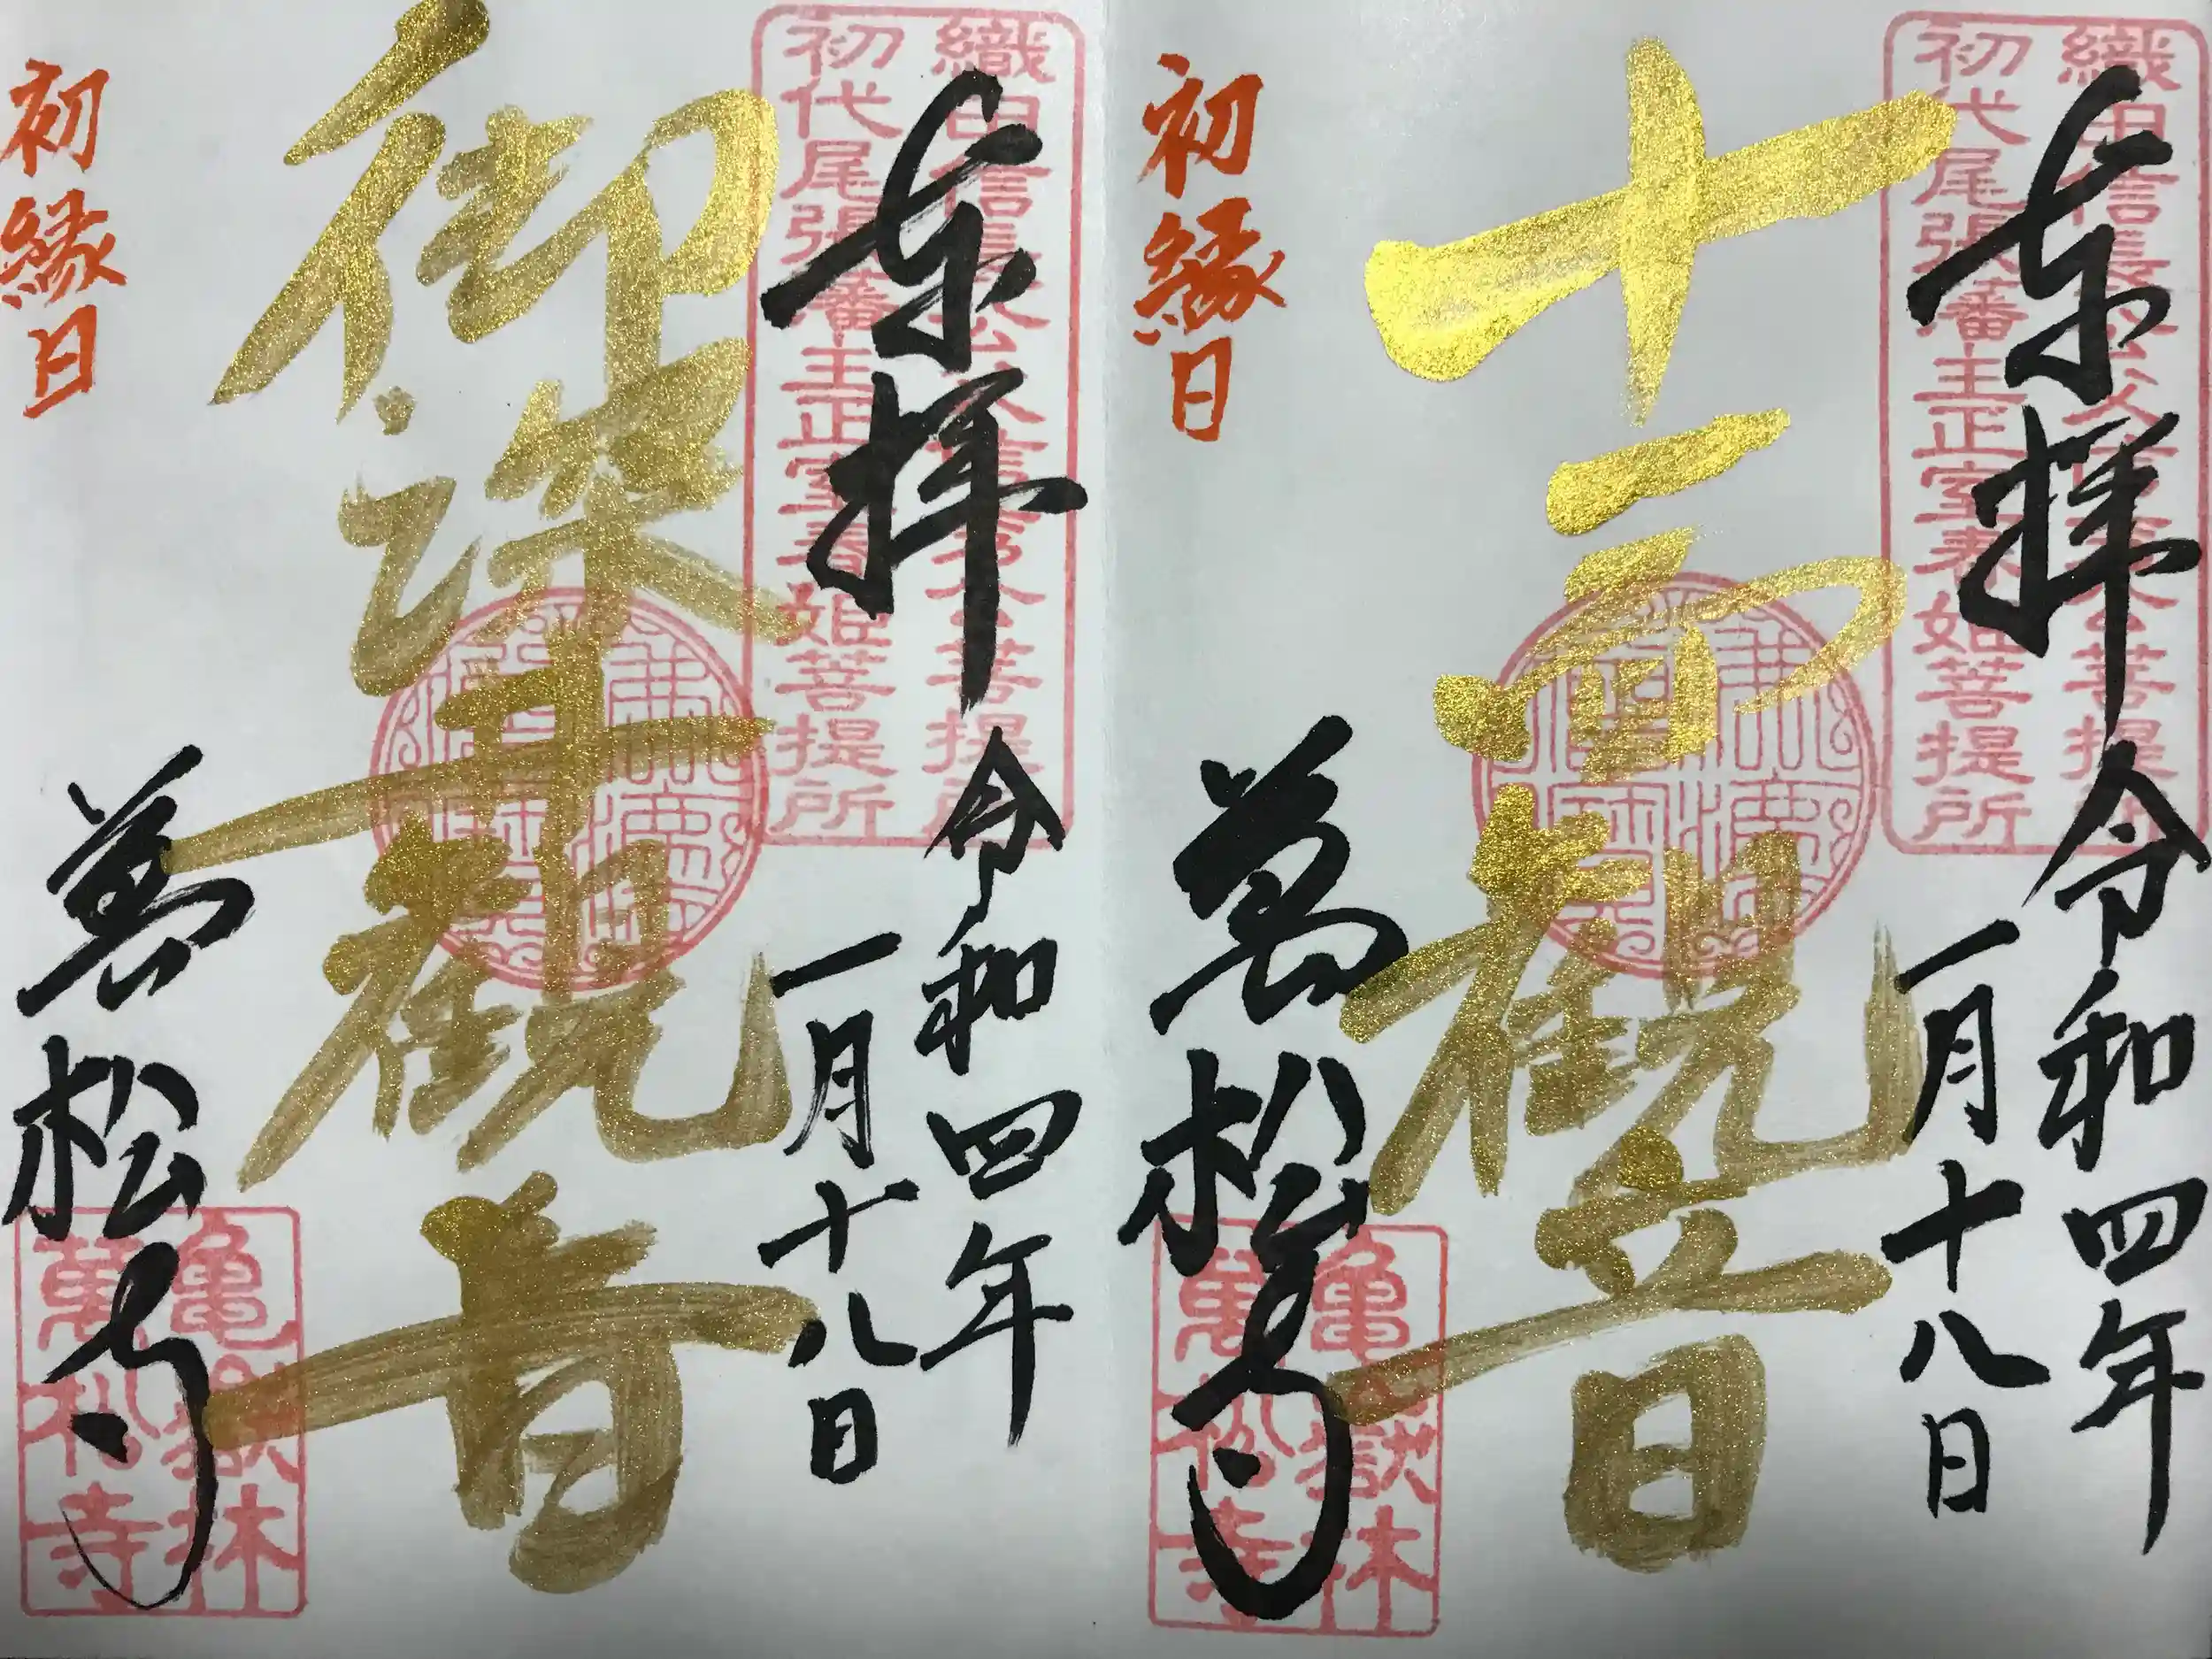 織田信長公父信秀公菩提所
初代尾張藩主正室春姫菩提所
奉拝
令和四年
一月十八日
十一面観音
初縁日
萬松寺
亀嶽林
萬松寺
織田信長公父信秀公菩提所
初代尾張藩主正室春姫菩提所
奉拝
令和四年
一月十八日
御深井観音
初縁日
萬松寺
亀嶽林
萬松寺